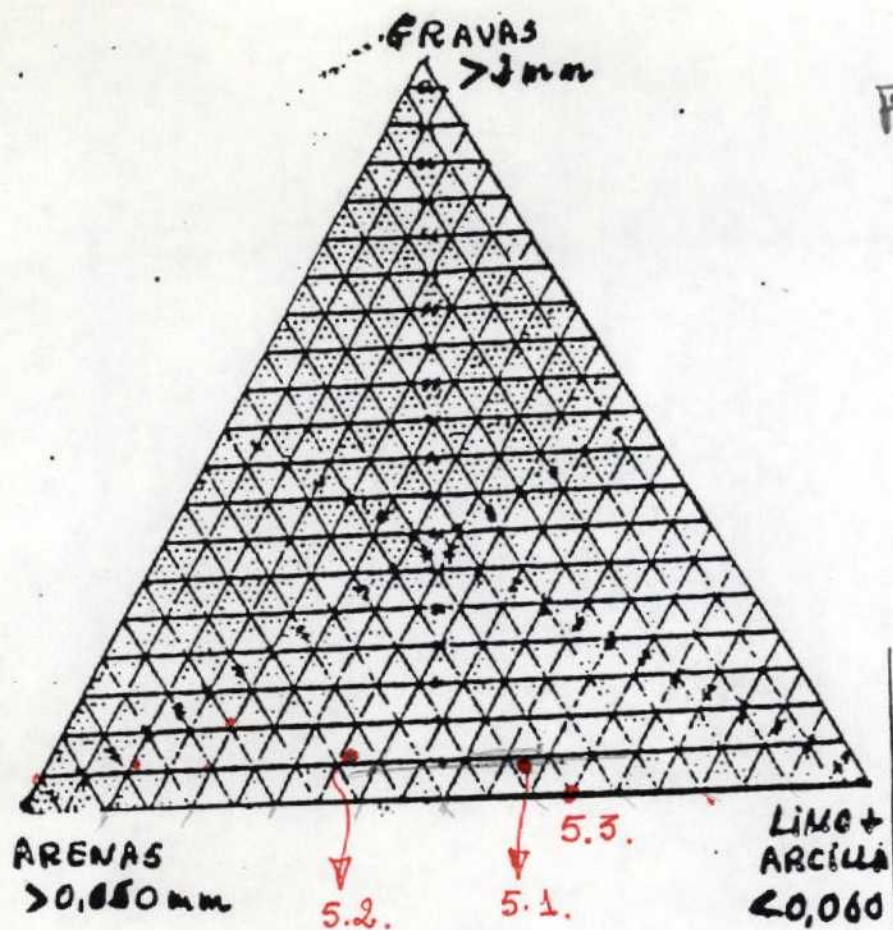 GRAVAS
>2mm
ARENAS
>0,060mm
5.2.
5.1.
5.3.
LIMO +
ARCILLA
<0,060